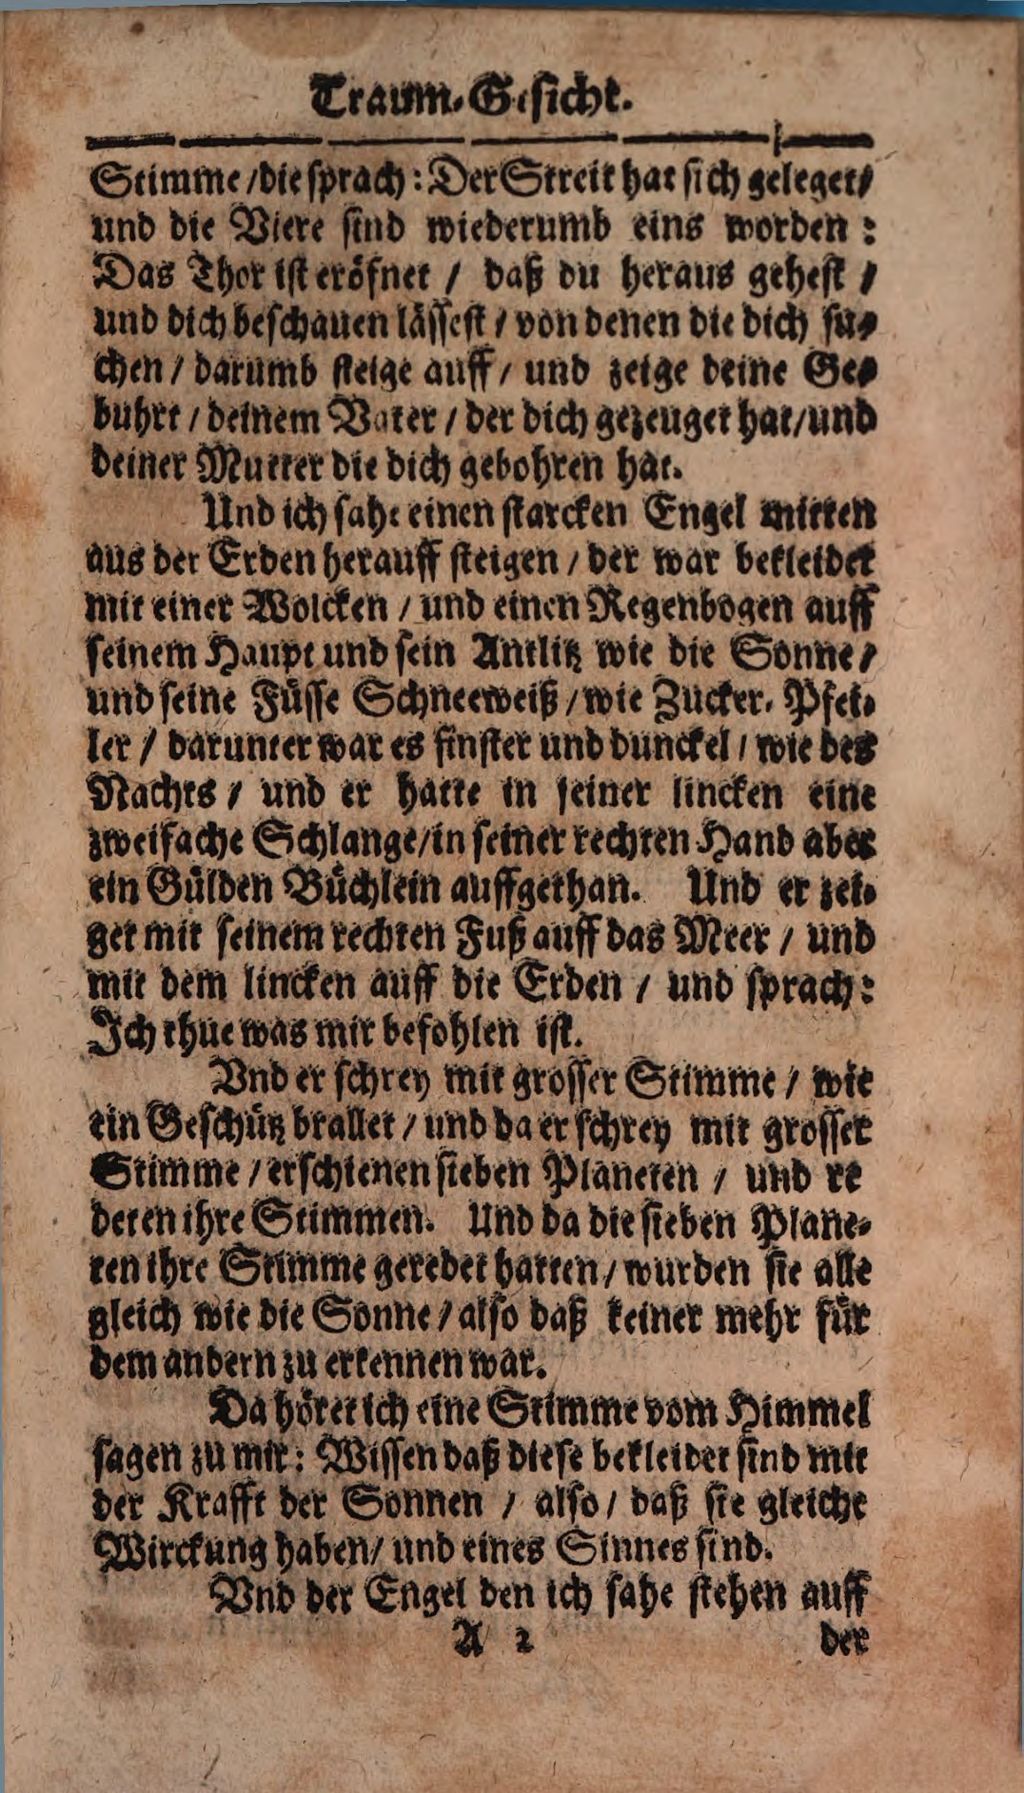 Traum-Gesicht.
Stimme / die sprach: Der Streit hat sich geleget /
und die Viere sind wiederumb eins worden:
Das Thor ist eröfnet / daß du heraus gehest /
und dich beschauen lässest / von denen die dich su-
chen / darumb steige auff / und zeige deine Ge-
buhrt / deinem Vater / der dich gezeuget hat / und
deiner Mutter die dich gebohren hat.
Und ich sahe einen starcken Engel mitten
aus der Erden herauff steigen / der war bekleidet
mit einer Wolcken / und einen Regenbogen auff
seinem Haupt und sein Antlitz wie die Sonne /
und seine Füsse Schneeweiß / wie Zucker-Pfei-
ler / darunter war es finster und dunckel / wie des
Nachts / und er hatte in seiner lincken eine
zweifache Schlange / in seiner rechten Hand aber
ein Gülden Büchlein auffgethan. Und er zei-
get mit seinem rechten Fuß auff das Meer / und
mit dem lincken auff die Erden / und sprach:
Ich thue was mir befohlen ist.
Vnd er schrey mit grosser Stimme / wie
ein Geschütz brallet / und da er schrey mit grosser
Stimme / erschienen sieben Planeten / und re
deten ihre Stimmen. Und da die sieben Plane-
ten ihre Stimme geredet hatten / wurden sie alle
gleich wie die Sonne / also daß keiner mehr für
dem andern zu erkennen war.
Da höret ich eine Stimme vom Himmel
sagen zu mir: Wissen daß diese bekleidet sind mit
der Krafft der Sonnen / also / daß sie gleiche
Wirckung haben / und eines Sinnes sind.
Vnd der Engel den ich sahe stehen auff
A 2 der